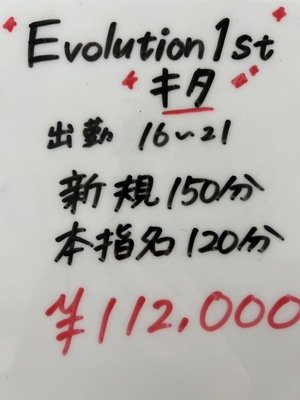 Evolution 1st
キタ
出勤 16〜21
新規 150分
本指名 120分
¥112,000